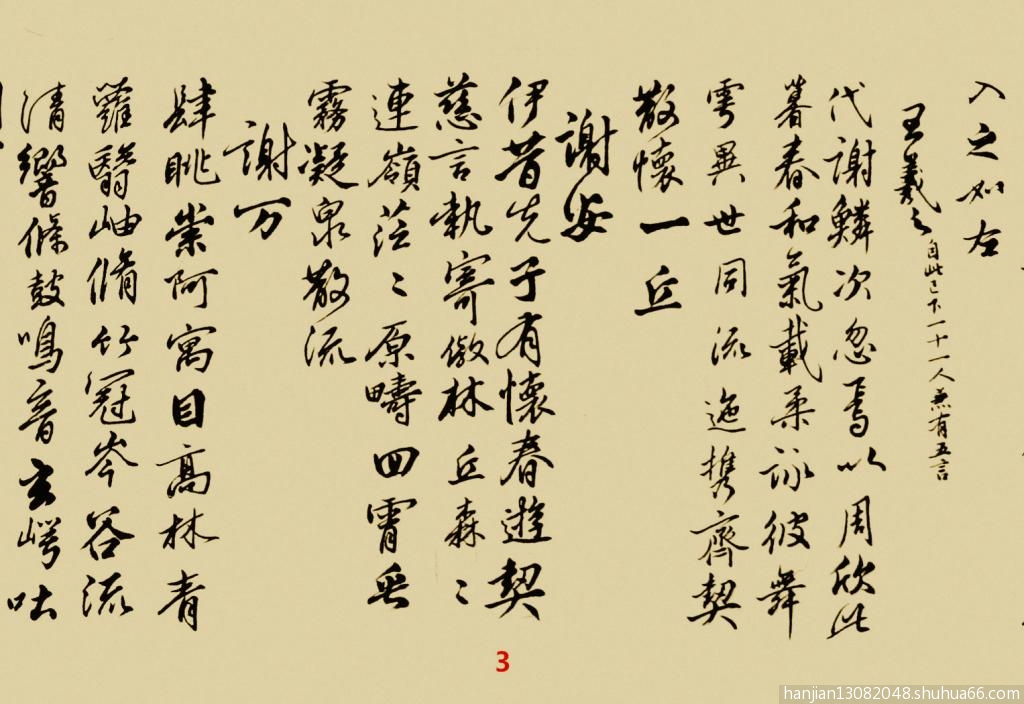 入之如左
王羲之 自此已下一十一人兼有五言
代謝鱗次忽焉以周欣此
暮春和氣載柔詠彼舞
雩異世同流迤携齊契
散懷一丘
謝安
伊昔先子有懷春遊契
慈言執寄傲林丘森〻
連嶺茫〻原疇四霄垂
霧凝泉散流
謝万
肆眺崇阿寓目高林青
蘿翳岫脩竹冠岑谷流
清響條鼓鳴音玄崿吐
3
hanjian13082048.shuhua66.com